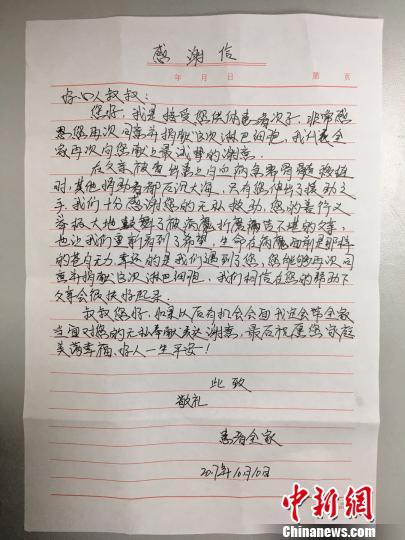 感谢信
年 月 日 第 页
好心人叔叔：
您好，我是接受您供体患者次子，非常感
恩您再次同意并捐献白次淋巴细胞，我代表全
家再次向您献上最诚挚的谢意。
在父亲被查出患上白血病急需骨髓移植
时，其他捐助者都石沉大海，只有您伸出了援助之
手，我们十分感谢您的无私救助，您的善行义
举极大地鼓舞了被病魔折磨痛苦不堪的父亲，
也让我们重新看到了希望，生命在病魔面前是那样
的苍白无力，幸运的是我们遇到了您，您能够再次同
意并捐献白次淋巴细胞，我们相信在您的帮助下
父亲会很快好起来。
叔叔您好，如果以后有机会会面我定会带全家
当面对您的无私奉献表达谢意，最后祝愿您家庭
美满幸福，好人一生平安！
此致
敬礼
患者全家
2017年10月10日
中新网
Chinanews.com